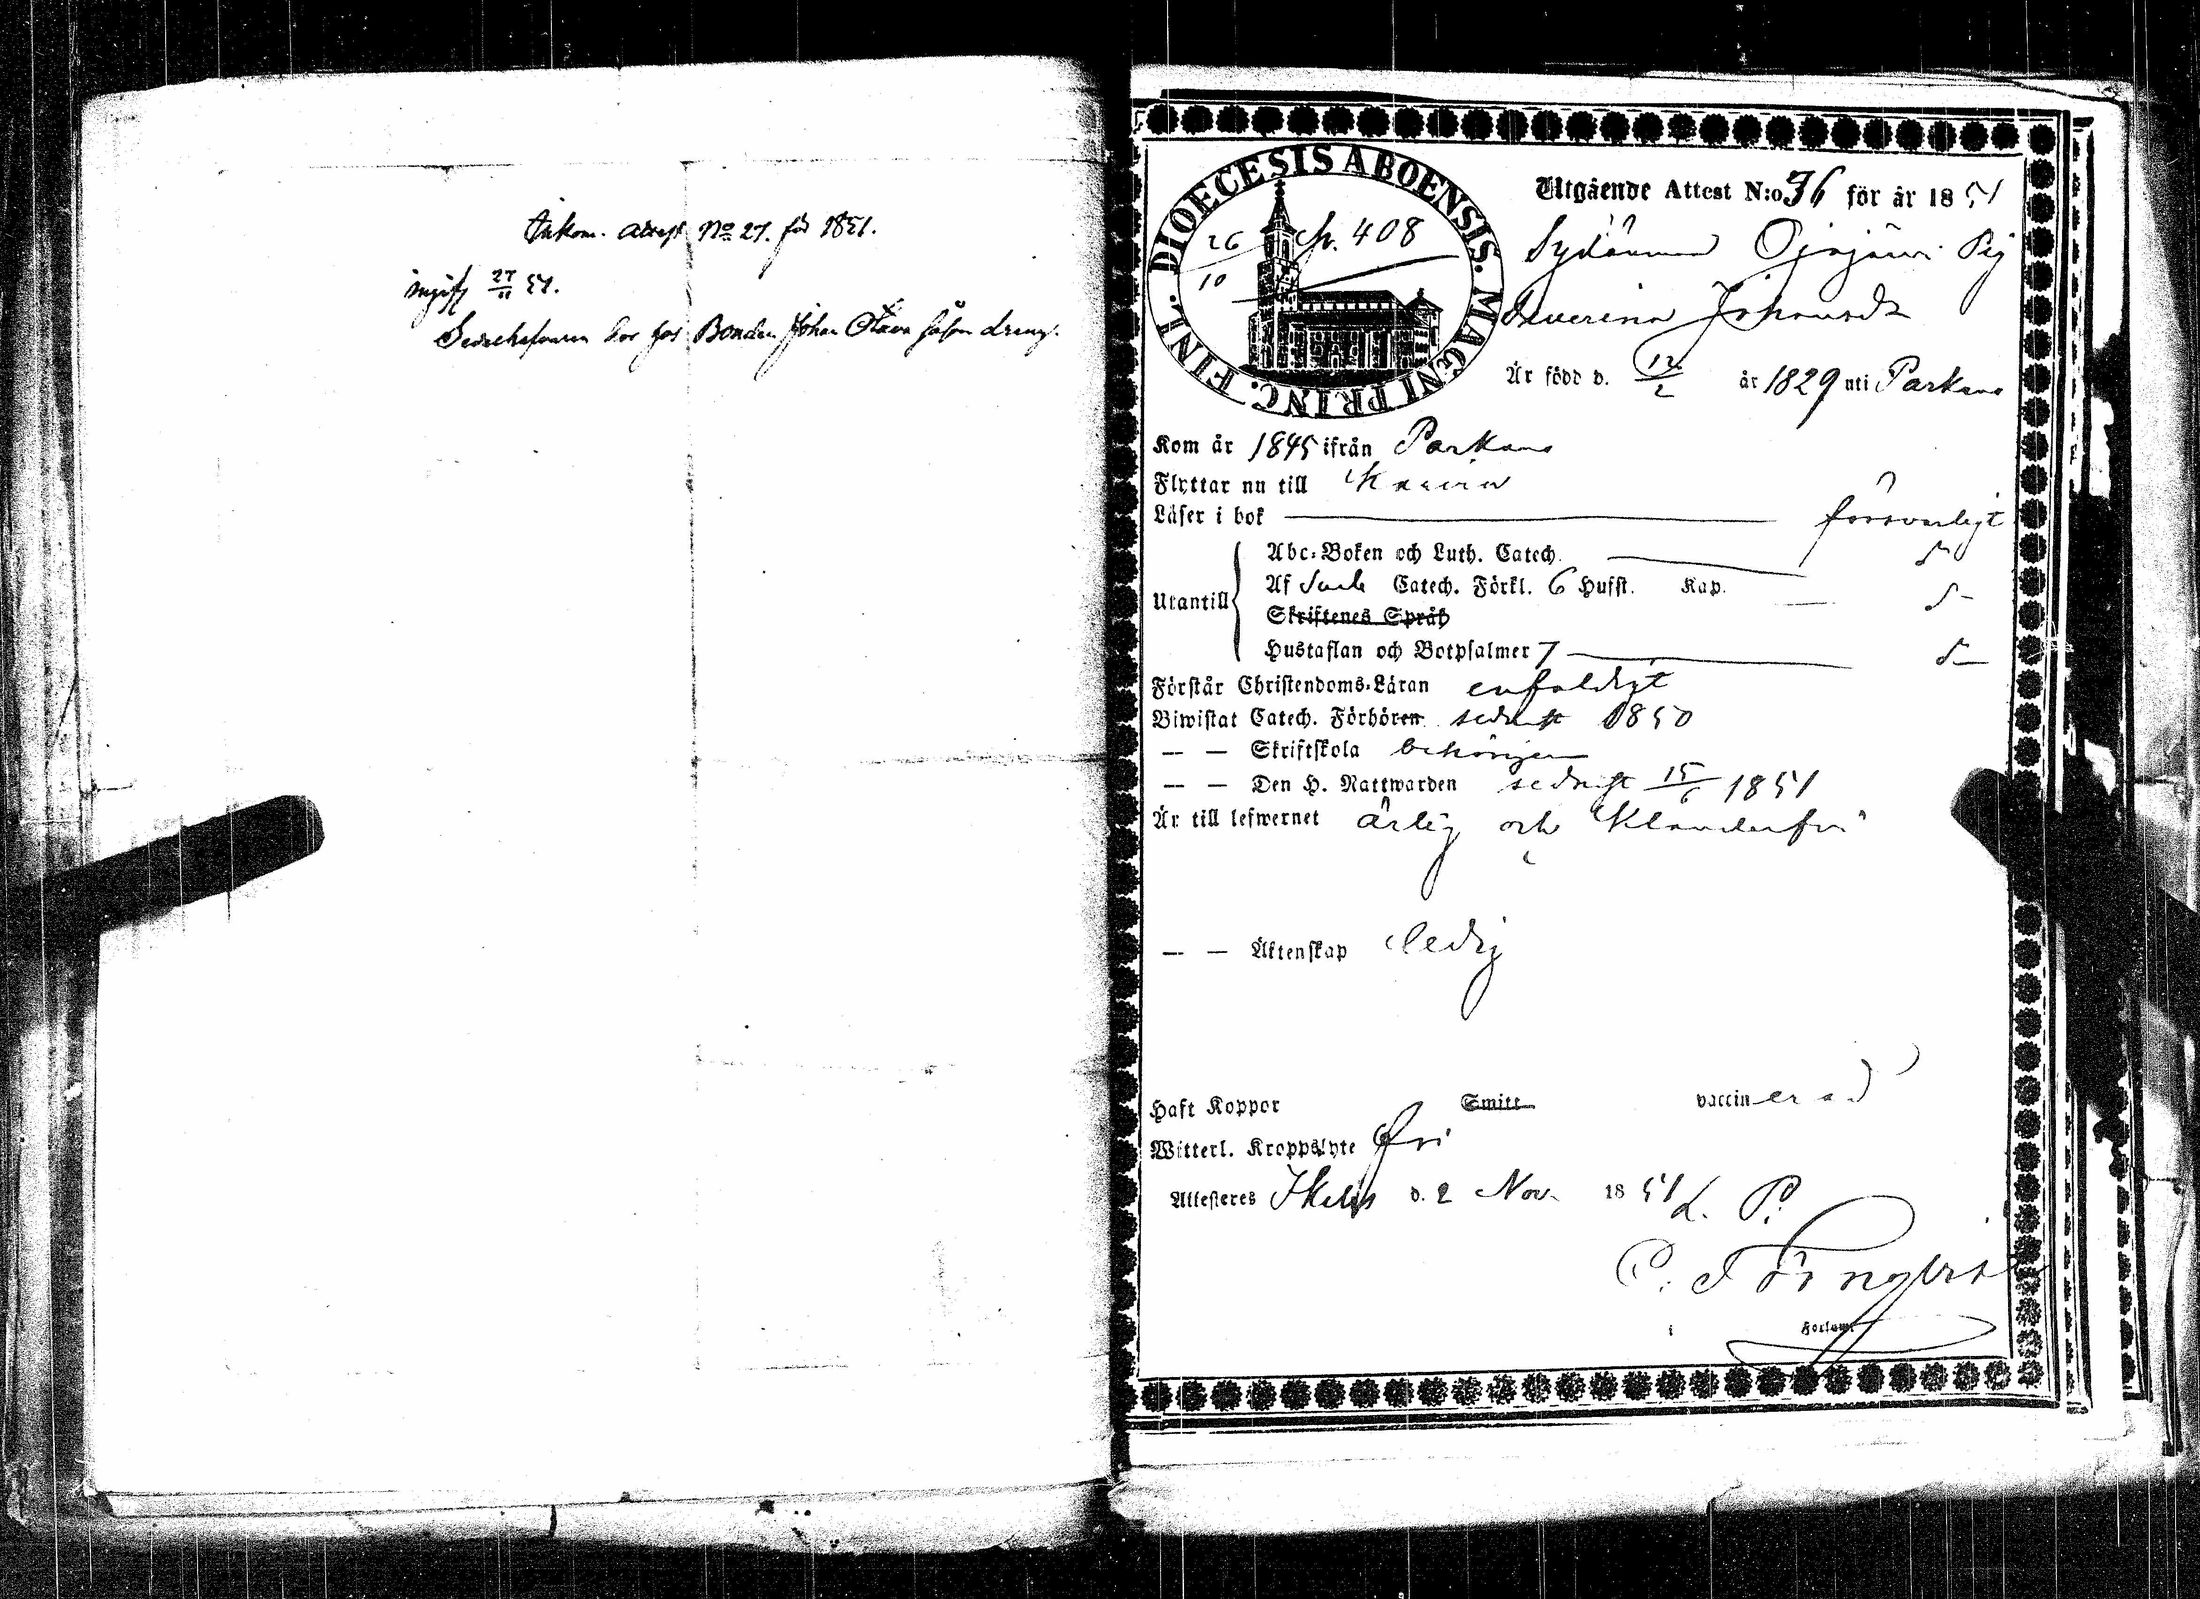 Inkom. attest No 27. för 1851.
27/11 51.
hos Bonden Johan
DIOECESIS ABOENSIS. MAGNI PRINC. FINL.
26/10 p. 408
Utgående Attest N:o 76 för år 1851
Pig
Severina Johansdr
Är född d. 12/2 år 1829 uti Parkano
Kom år 1845 ifrån Parkano
Flyttar nu till
Läser i bok försvarligt
Abc-Boken och Luth. Catech. d-
Utantill
Af Catech. Förkl. 6 Hufst. Kap. d-
Skriftenes Språk
Hustaflan och Botpsalmer 7 d-
Förstår Christendoms-Läran enfaldigt
Biwistat Catech. Förhören sednast 1850
— — Skriftskola behörigen
— — Den H. Nattwarden sednast 15/6 1851
Är till lefwernet ärlig och klanderfri
— — Äktenskap ledig
Haft Koppor Smitt vaccinerad
Witterl. Kroppslyte fri
Attesteras Ikalis d. 2 Nov. 1851 L. P.